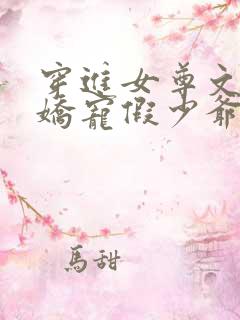 穿進女尊文
嬌寵假少爺
馬甜